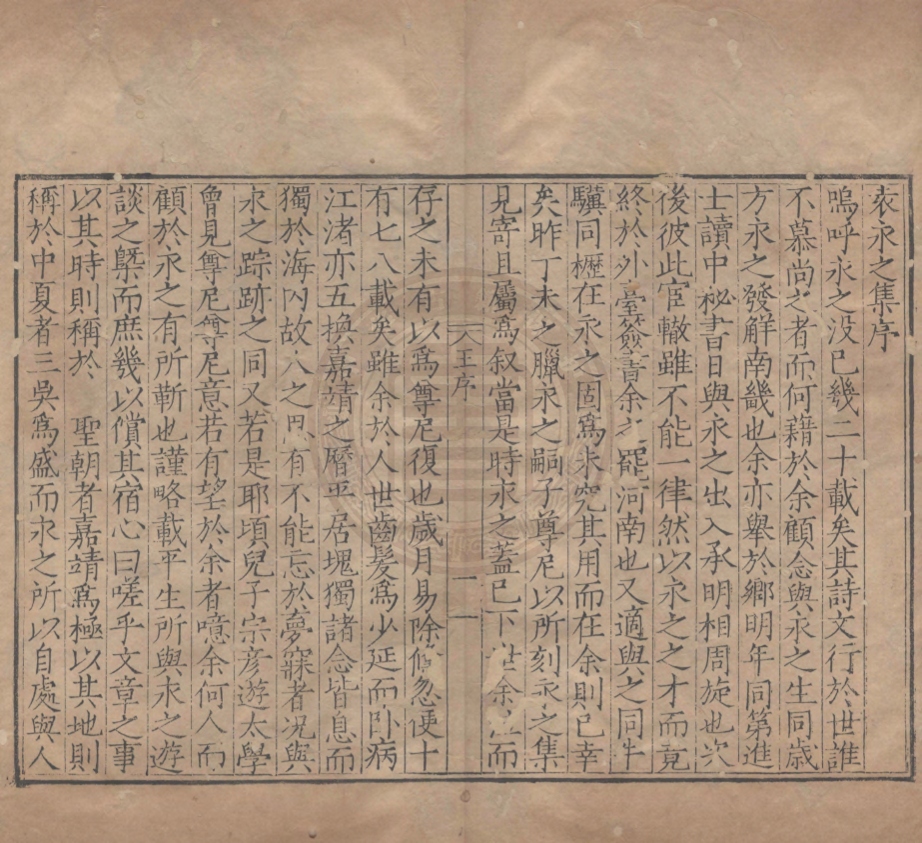 袁永之集序
嗚呼永之没已幾二十載矣其詩文行於世誰
不慕尚之者而何藉於余顧念與永之生同歲
方永之發解南畿也余亦舉於鄉明年同第進
士讀中秘書日與永之出入承明相周旋也次
後彼此宦轍雖不能一律然以永之之才而竟
終於外臺簽書余之罷河南也又適與之同牛
驥同櫪在永之固爲未究其用而在余則已幸
矣昨丁未之臘永之嗣子尊尼以所刻永之集
見寄且屬爲叙當是時永之蓋已下世余 而
王序 一
存之未有以爲尊尼復也歲月易除倐忽便十
有七八載矣雖余於人世齒髮爲少延而卧病
江渚亦五換嘉靖之曆平居塊獨諸念皆息而
獨於海内故人之思有不能忘於夢寐者况與
永之踪跡之同又若是耶頃兒子宗彦遊太學
曾見尊尼尊尼意若有望於余者噫余何人而
顧於永之有所靳也謹略載平生所與永之遊
談之槩而庶幾以償其宿心曰嗟乎文章之事
以其時則稱於 聖朝者嘉靖爲極以其地則
稱於中夏者三吳爲盛而永之所以自處與人